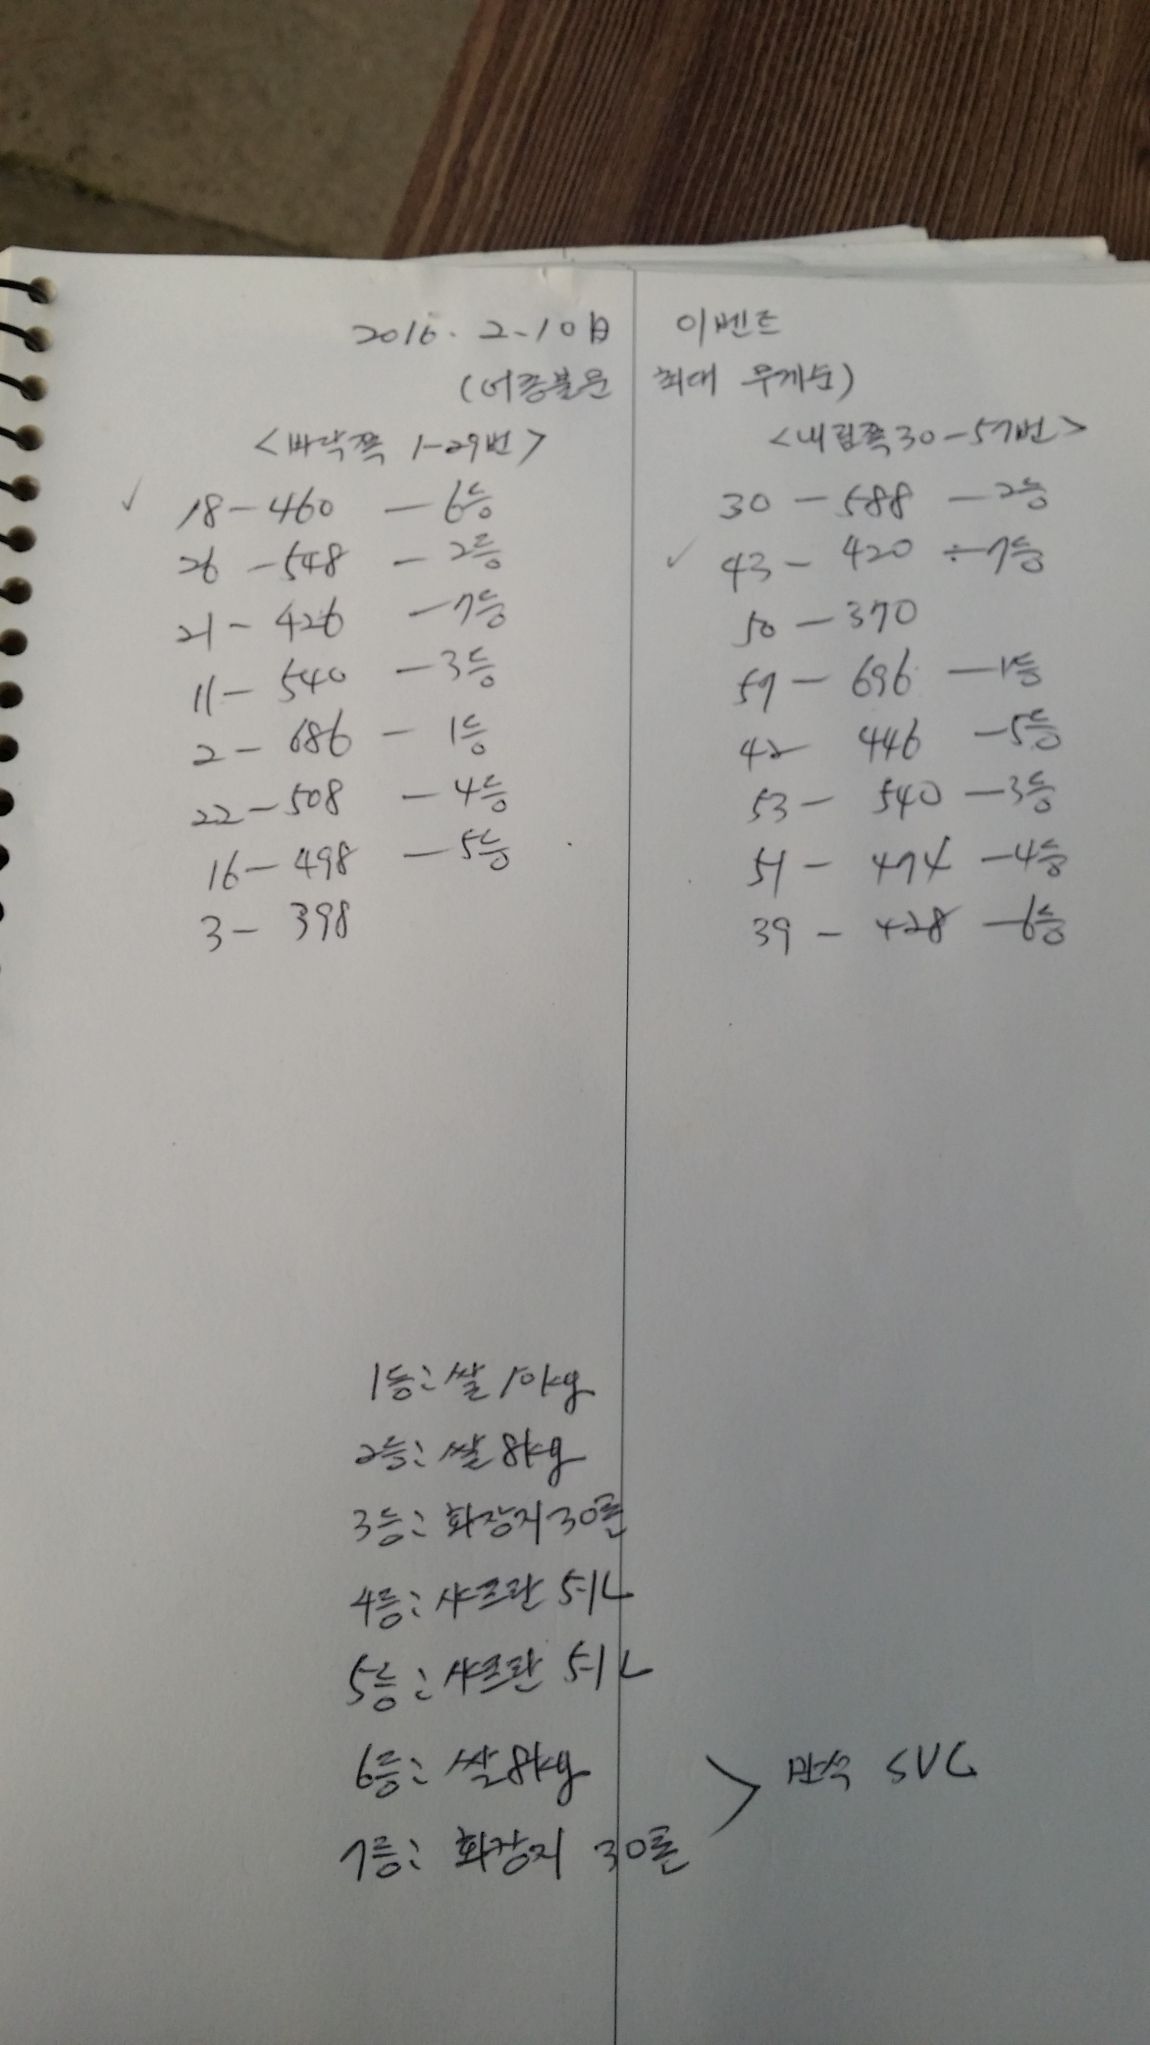 2016. 2-10日 이벤트
(어종불문 최대 무게순)
<바닥쪽 1-29번>
18-460 -6등
26-548 -2등
21-426 -7등
11-540 -3등
2-686 - 1등
22-508 -4등
16-498 -5등
3-398
<내림쪽30-57번>
30-588 -2등
43-420 -7등
50-370
57-696 -1등
42- 446 -5등
53- 540 -3등
51- 474 -4등
39- 428 -6등
1등: 쌀 10kg
2등: 쌀 8kg
3등: 화장지 30롤
4등: 샤프란 5-1L
5등: 샤프란 5-1L
6등: 쌀 8kg
7등: 화장지 30롤
SVC